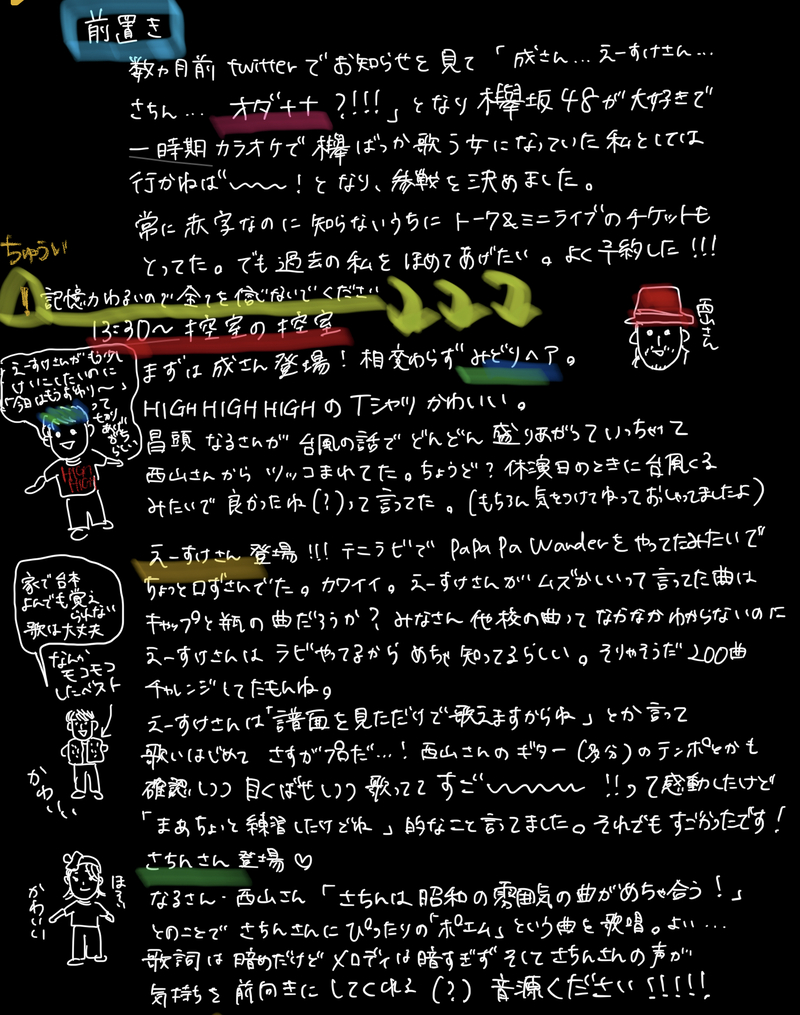 前置き
数カ月前 twitterでお知らせを見て「成さん…えーすけさん…
さちん… オダナナ ?!!!」となり欅坂48が大好きで
一時期カラオケで欅ばっか歌う女になっていた私としては
行かねば〜〜〜!となり、参戦を決めました。
常に赤字なのに知らないうちにトーク&ミニライブのチケットも
とってた。でも過去の私をほめてあげたい。よく予約した!!!
ちゅうい
! 記憶力わるいので全てを信じないでください
13:30〜控室の控室
西山さん
まずは成さん登場!相変わらずみどりヘア。
HIGH HIGH HIGHのTシャツかわいい。
えーすけさんがもう少し
けいこしたいのに
「今日はもうおわり〜」
って
HIGH
HIGH
冒頭なるさんが台風の話でどんどん盛りあがっていっちゃて
西山さんからツッコまれてた。ちょうど?休演日のときに台風くる
みたいで良かったね(?)って言ってた。(もちろん気をつけてねっておっしゃってましたよ)
えーすけさん登場!!!テニラビでPaPaPa Wanderをやってたみたいで
ちょっと口ずさんでた。カワイイ。えーすけさんがムズかしいって言ってた曲は
キャップと瓶の曲だろうか?みなさん他校の曲ってなかなかわからないのに
えーすけさんはラビやってるからめちゃ知ってるらしい。そりゃそうだ200曲
チャレンジしてたもんね。
家で台本
よんでも覚え
られない
歌は大丈夫
なんか
モコモコ
したベスト
かわいい
えーすけさんは「譜面を見ただけで歌えますからね」とか言って
歌いはじめてさすがプロだ…!西山さんのギター(多分)のテンポとかも
確認しつつ目くばせしつつ歌っててすご〜〜〜〜!!って感動したけど
「まあちょいと練習したけどね」的なこと言ってました。それでもすごかったです!
さちんさん登場♡
ほそい
かわいい
なるさん・西山さん「さちんは昭和の雰囲気の曲がめちゃ合う!」
とのことでさちんさんにぴったりの「ポエム」という曲を歌唱。よい…
歌詞は暗めだけどメロディは暗すぎずそしてさちんさんの声が
気持ちを前向きにしてくれる(?)音源ください!!!!!